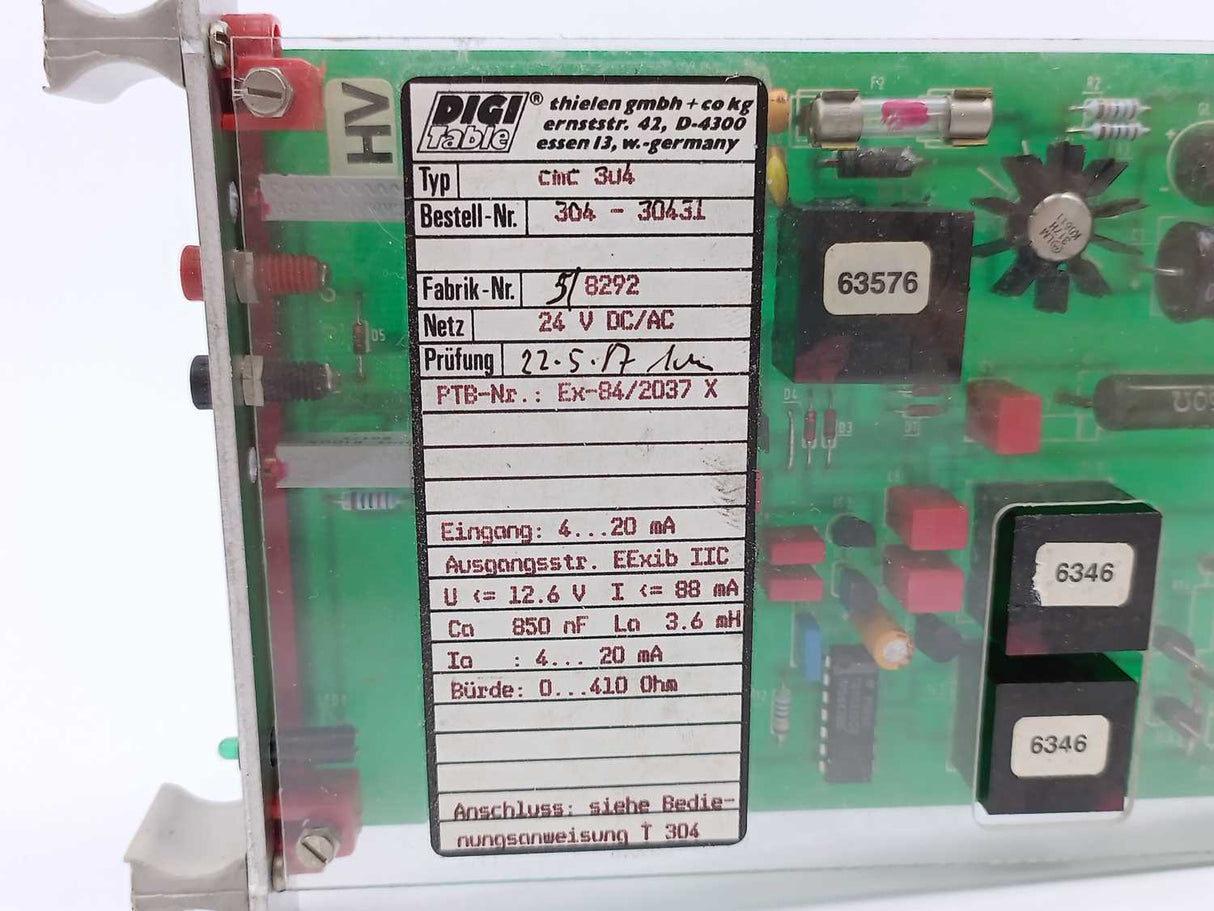 HV
DIGI ® thielen gmbh + co kg
Table ernststr. 42, D-4300
essen 13, w.-germany
Typ CmC 3U4
Bestell-Nr. 304 - 30431
Fabrik-Nr. 5/8292
Netz 24 V DC/AC
Prüfung 22.5.87
PTB-Nr.: Ex-84/2037 X
Eingang: 4...20 mA
Ausgangsstr. EExib IIC
U <= 12.6 V I <= 88 mA
Ca 850 nF La 3.6 mH
Ia : 4... 20 mA
Bürde: 0...410 Ohm
Anschluss: siehe Bedie-
nungsanweisung T 304
63576
6346
6346
LM
317H
R2
D5
D4
D3